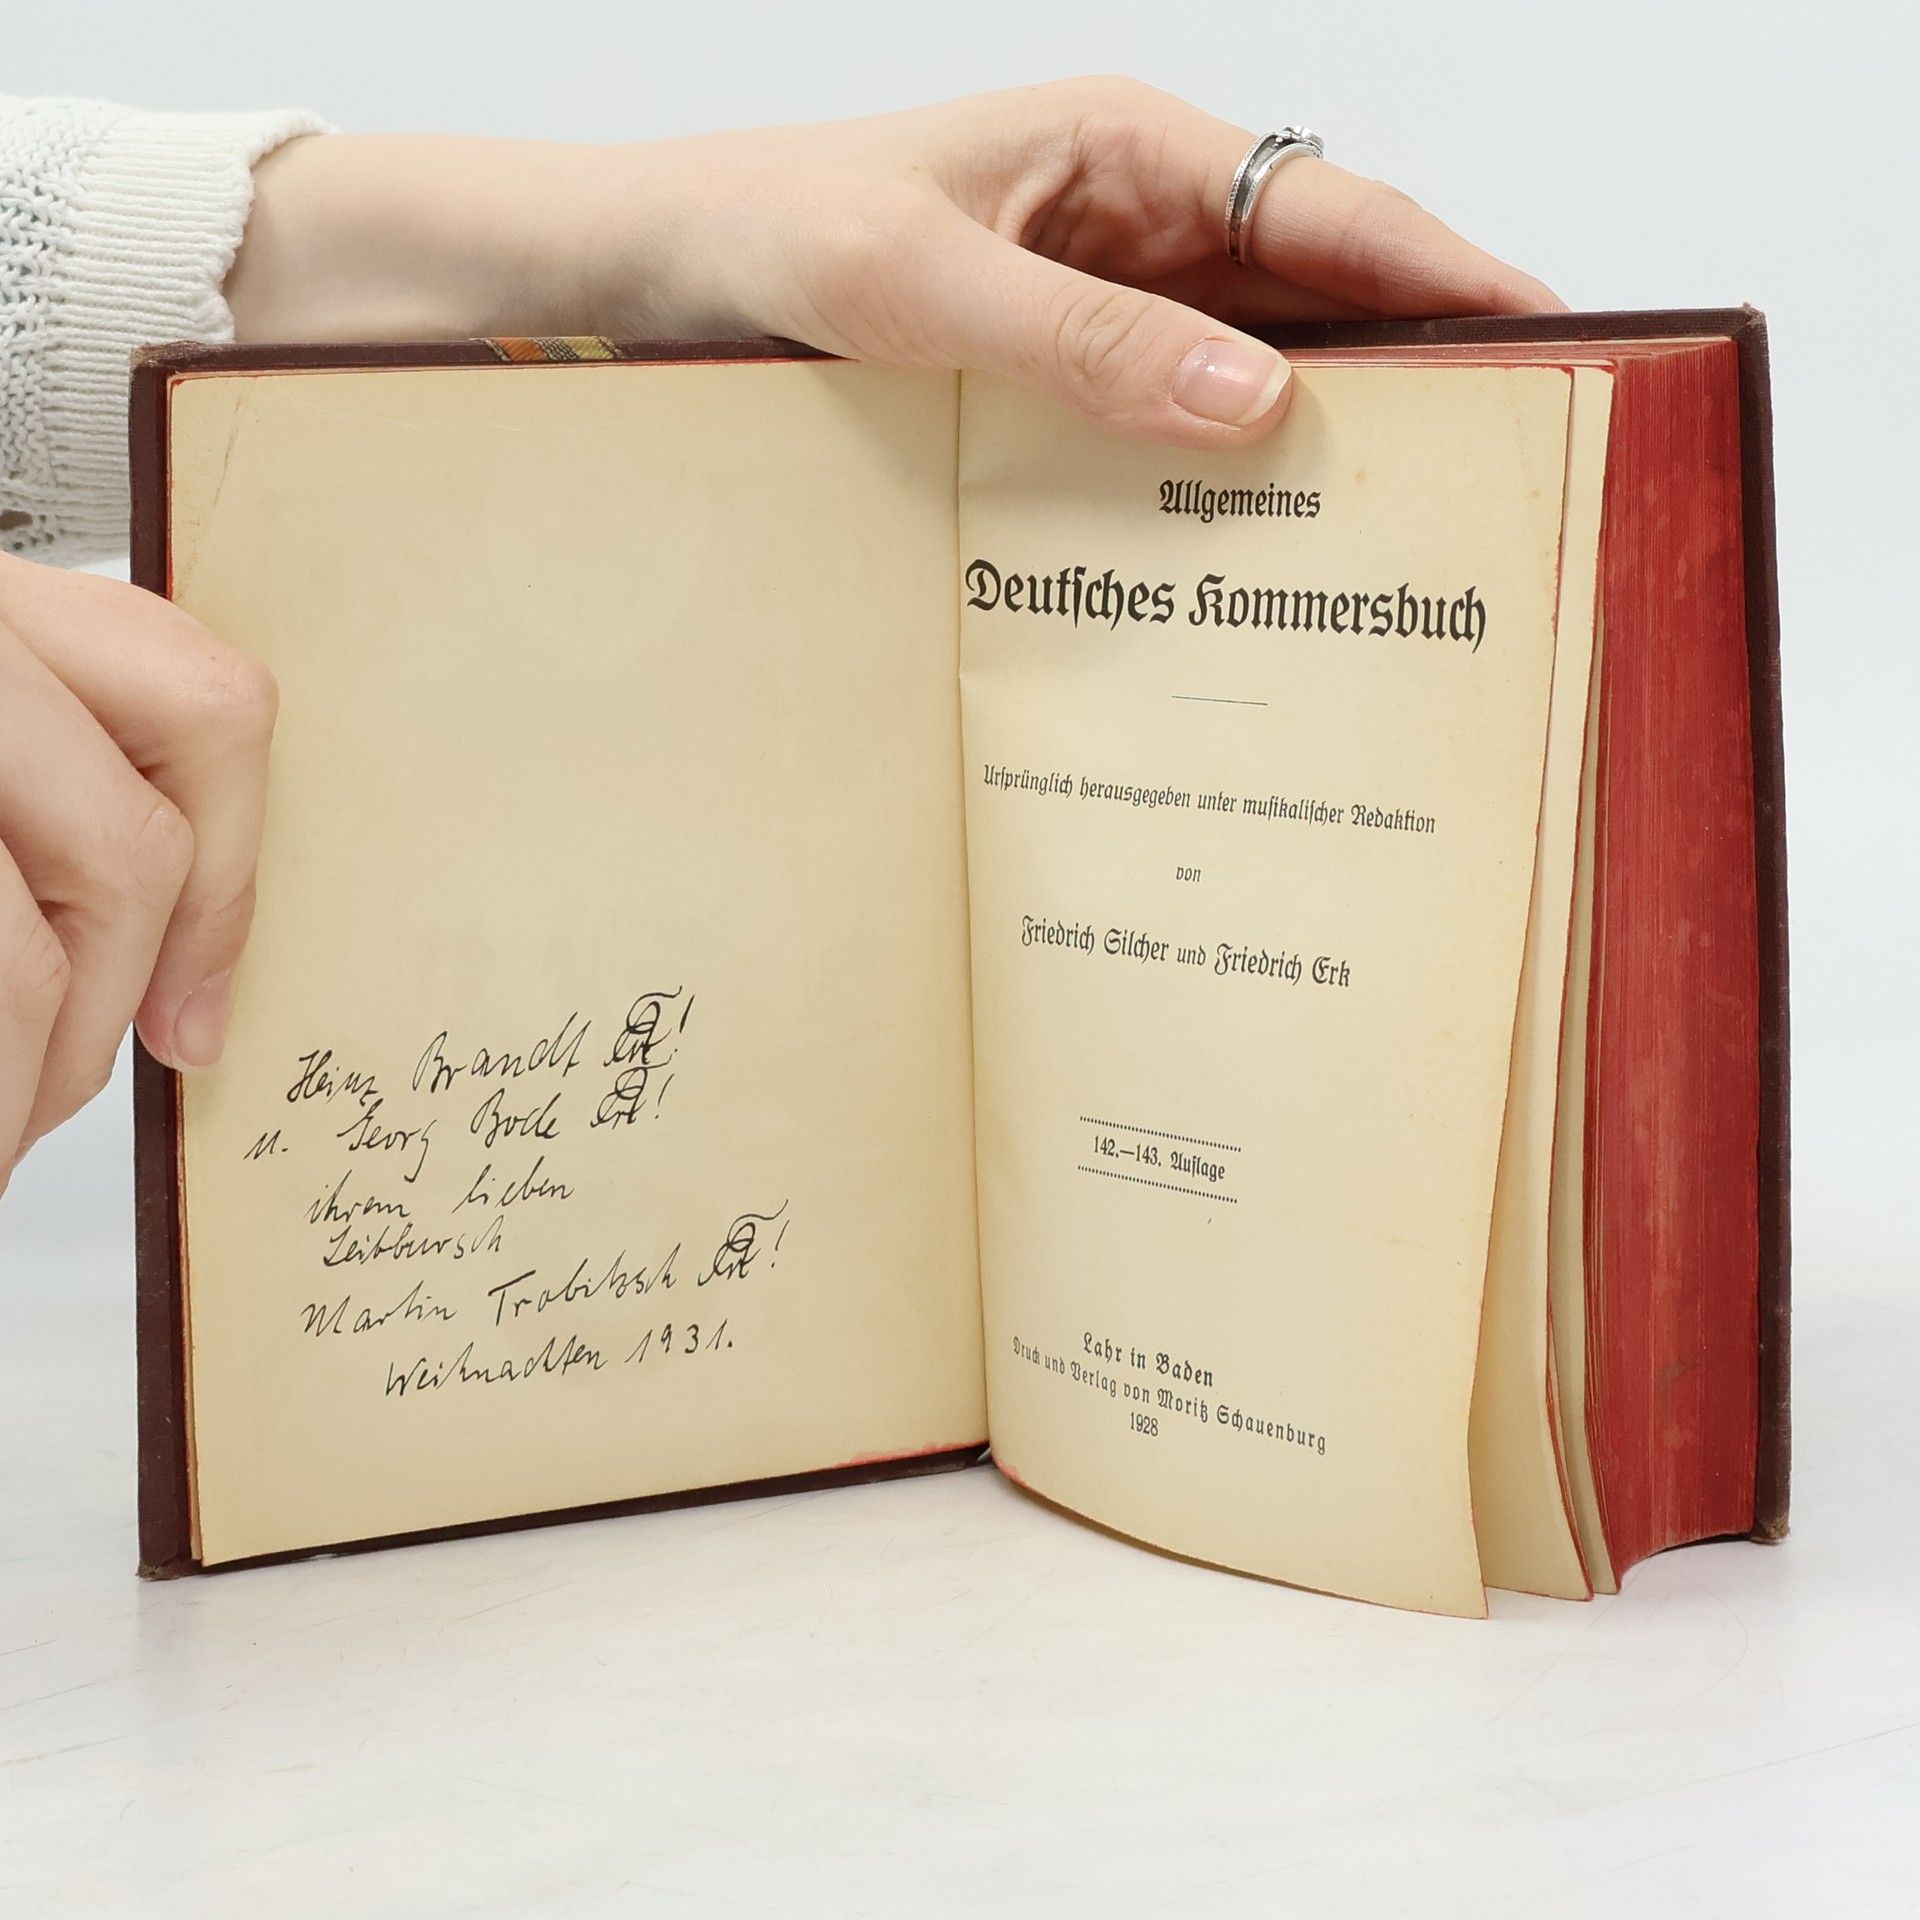 Heinz Brandt !
u. Georg Bode !
ihrem lieben
Leibbursch
Martin Trobitzsch !
Weihnachten 1931.
Allgemeines
Deutſches Kommersbuch
Urſprünglich herausgegeben unter muſikaliſcher Redaktion
von
Friedrich Silcher und Friedrich Erk
142.—143. Auflage
Lahr in Baden
Druck und Verlag von Moritz Schauenburg
1928